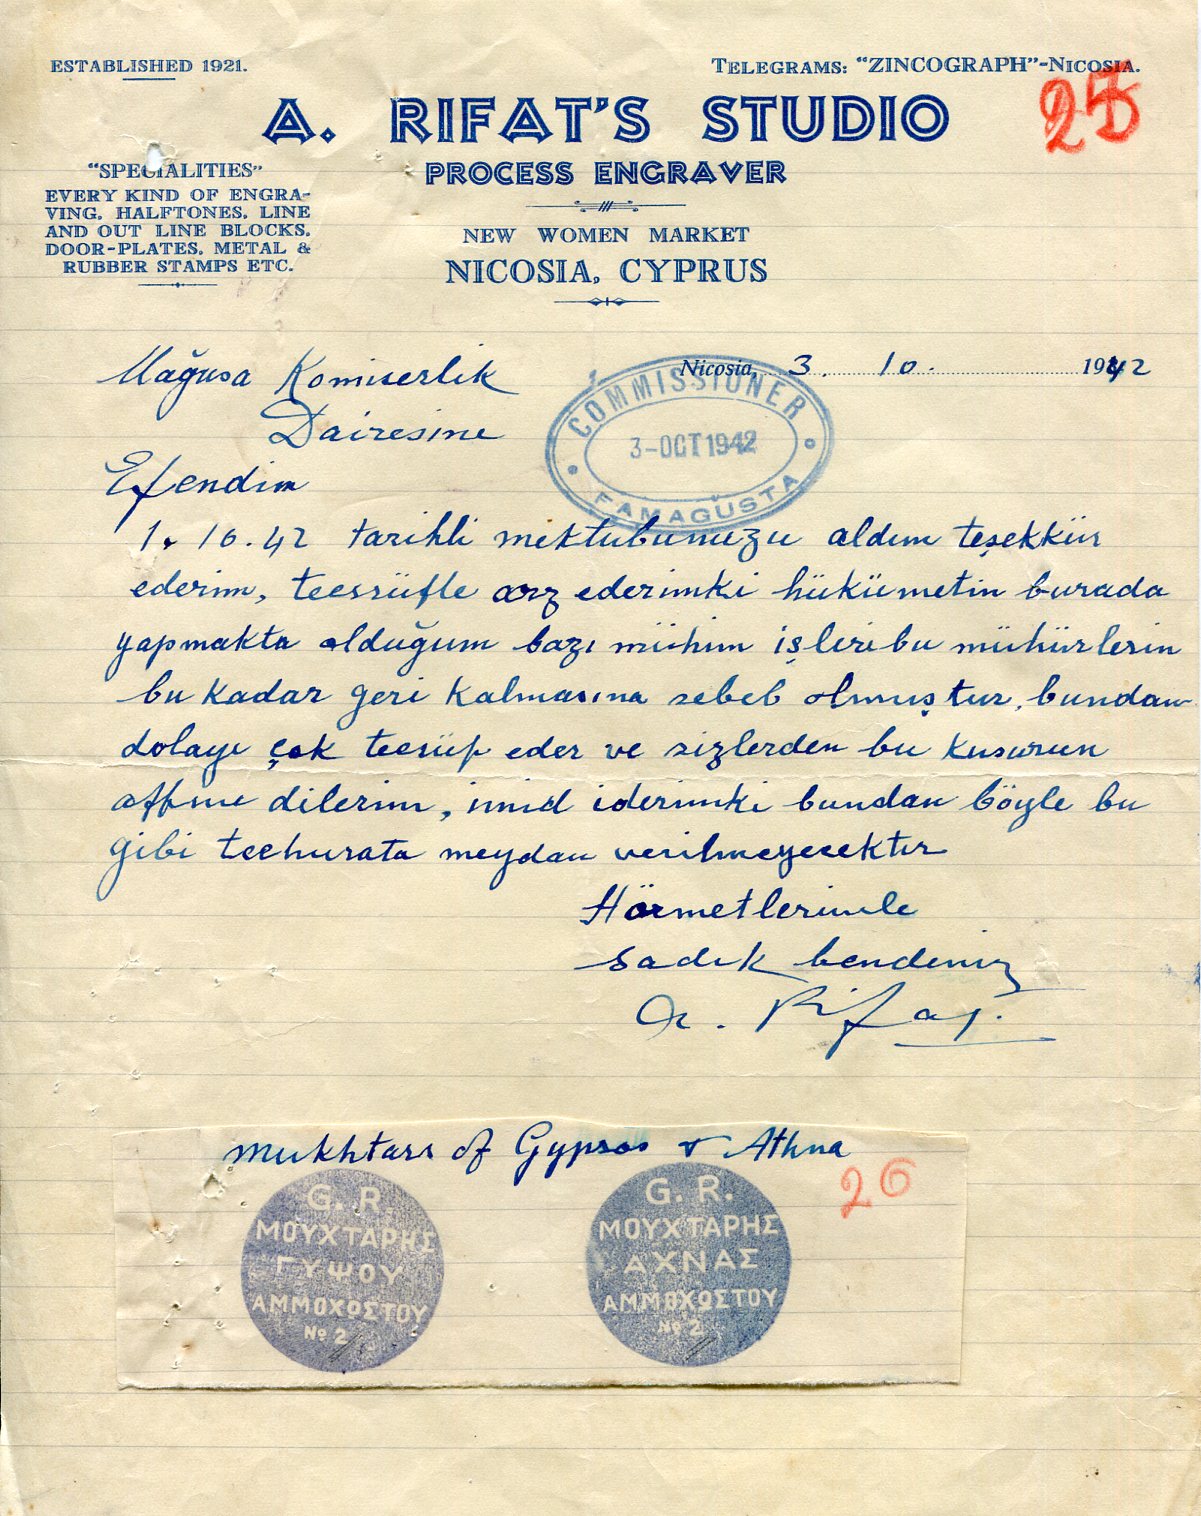 ESTABLISHED 1921.
TELEGRAMS: "ZINCOGRAPH"-NICOSIA.
25
A. RIFAT'S STUDIO
PROCESS ENGRAVER
"SPECIALITIES"
EVERY KIND OF ENGRA-
VING, HALFTONES, LINE
AND OUT LINE BLOCKS,
DOOR-PLATES, METAL &
RUBBER STAMPS ETC.
NEW WOMEN MARKET
NICOSIA, CYPRUS
Nicosia, 3. 10. 1942
COMMISSIONER
3-OCT 1942
FAMAGUSTA
Mağusa Komiserlik
Dairesine
Efendim
1. 10. 42 tarihli mektubunuzu aldım teşekkür
ederim, teessüfle arz ederimki hükümetin burada
yapmakta olduğum bazı mühim işleri bu mühürlerin
bu kadar geri kalmasına sebeb olmuştur, bundan
dolayı çok teesüf eder ve sizlerden bu kusurun
affını dilerim, ümid iderimki bundan böyle bu
gibi teehurata meydan verilmeyecektir
Hörmetlerimle
Sadık bendeniz
A. Rifat.
Mukhtars of Gypsos & Athna
26
G. R.
ΜΟΥΧΤΑΡΗΣ
ΓΥΨΟΥ
ΑΜΜΟΧΩΣΤΟΥ
Νο 2
G. R.
ΜΟΥΧΤΑΡΗΣ
ΑΧΝΑΣ
ΑΜΜΟΧΩΣΤΟΥ
Νο 2